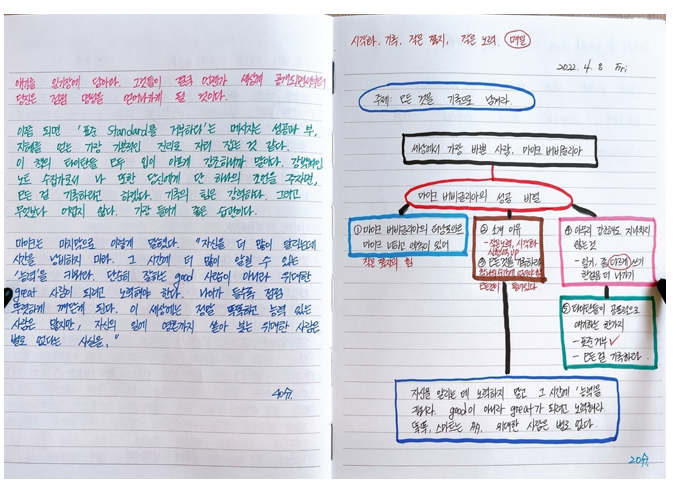 얘기를 일기장에 담아라. 그것들이 결국 언젠가 세상에 공개되면
당신은 점점 영감을 얻어나가게 될 것이다.
이쯤 되면 '표준 Standard를 거부하라'는 메시지는 성공과 부,
지혜를 얻는 가장 기본적인 진리로 자리 잡은 것 같다.
이 책의 타이탄들 모두 입이 아프게 강조하니까 말이다. 강박적인
노트 수집가로서 나 또한 당신에게 단 하나의 조언을 주자면,
모든 걸 기록하라고 하겠다. 기록의 힘은 강력하다. 그리고
무엇보다 어렵지 않다. 가장 들이기 좋은 습관이다.
마이크는 마지막으로 이렇게 말했다. "자신을 더 많이 알리는데
시간을 낭비하지 마라. 그 시간에 더 많이 알릴 수 있는
'능력'을 키워라. 단순히 잘하는 good 사람이 아니라 위대한
great 사람이 되려고 노력해야 한다. 나이가 들수록 점점
뚜렷하게 깨닫게 된다. 이 세상에는 정말 똑똑하고 능력 있는
사람은 많지만, 자신의 일에 영혼까지 쏟아 붓는 위대한 사람은
별로 없다는 사실을."
40쉬.
시작하라. 기록, 작은 쪽지, 작은 노력. 매일
2022. 4. 8 Fri
주제: 모든 것을 기록으로 남겨라.
세상에서 가장 바쁜 사람, 마이크 버비글리아
마이크 버비글리아의 성공 비결
① 마이크 버비글리아의 책상위에는
마이크 너하고 약속이 있어
작은 쪽지의 힘
② 소개 이유
- 작은노력, 시작하라
③ 모든 것을 기록하라
④ 아무리 강조해도 지나치지
않는 것
- 일기, 좀 이르게 쓰기
한걸음 더 나가기
⑤ 타이탄들이 공통적으로
얘기하는 한가지
- 표준 거부 ✓
- 모든 걸 기록하라
자신을 알리는 데 노력하지 말고 그 시간에 '능력'을
키워라. good이 아니라 great가 되려고 노력해라
똑똑, 스마트는 多. 위대한 사람은 별로 없다.
20쉬.